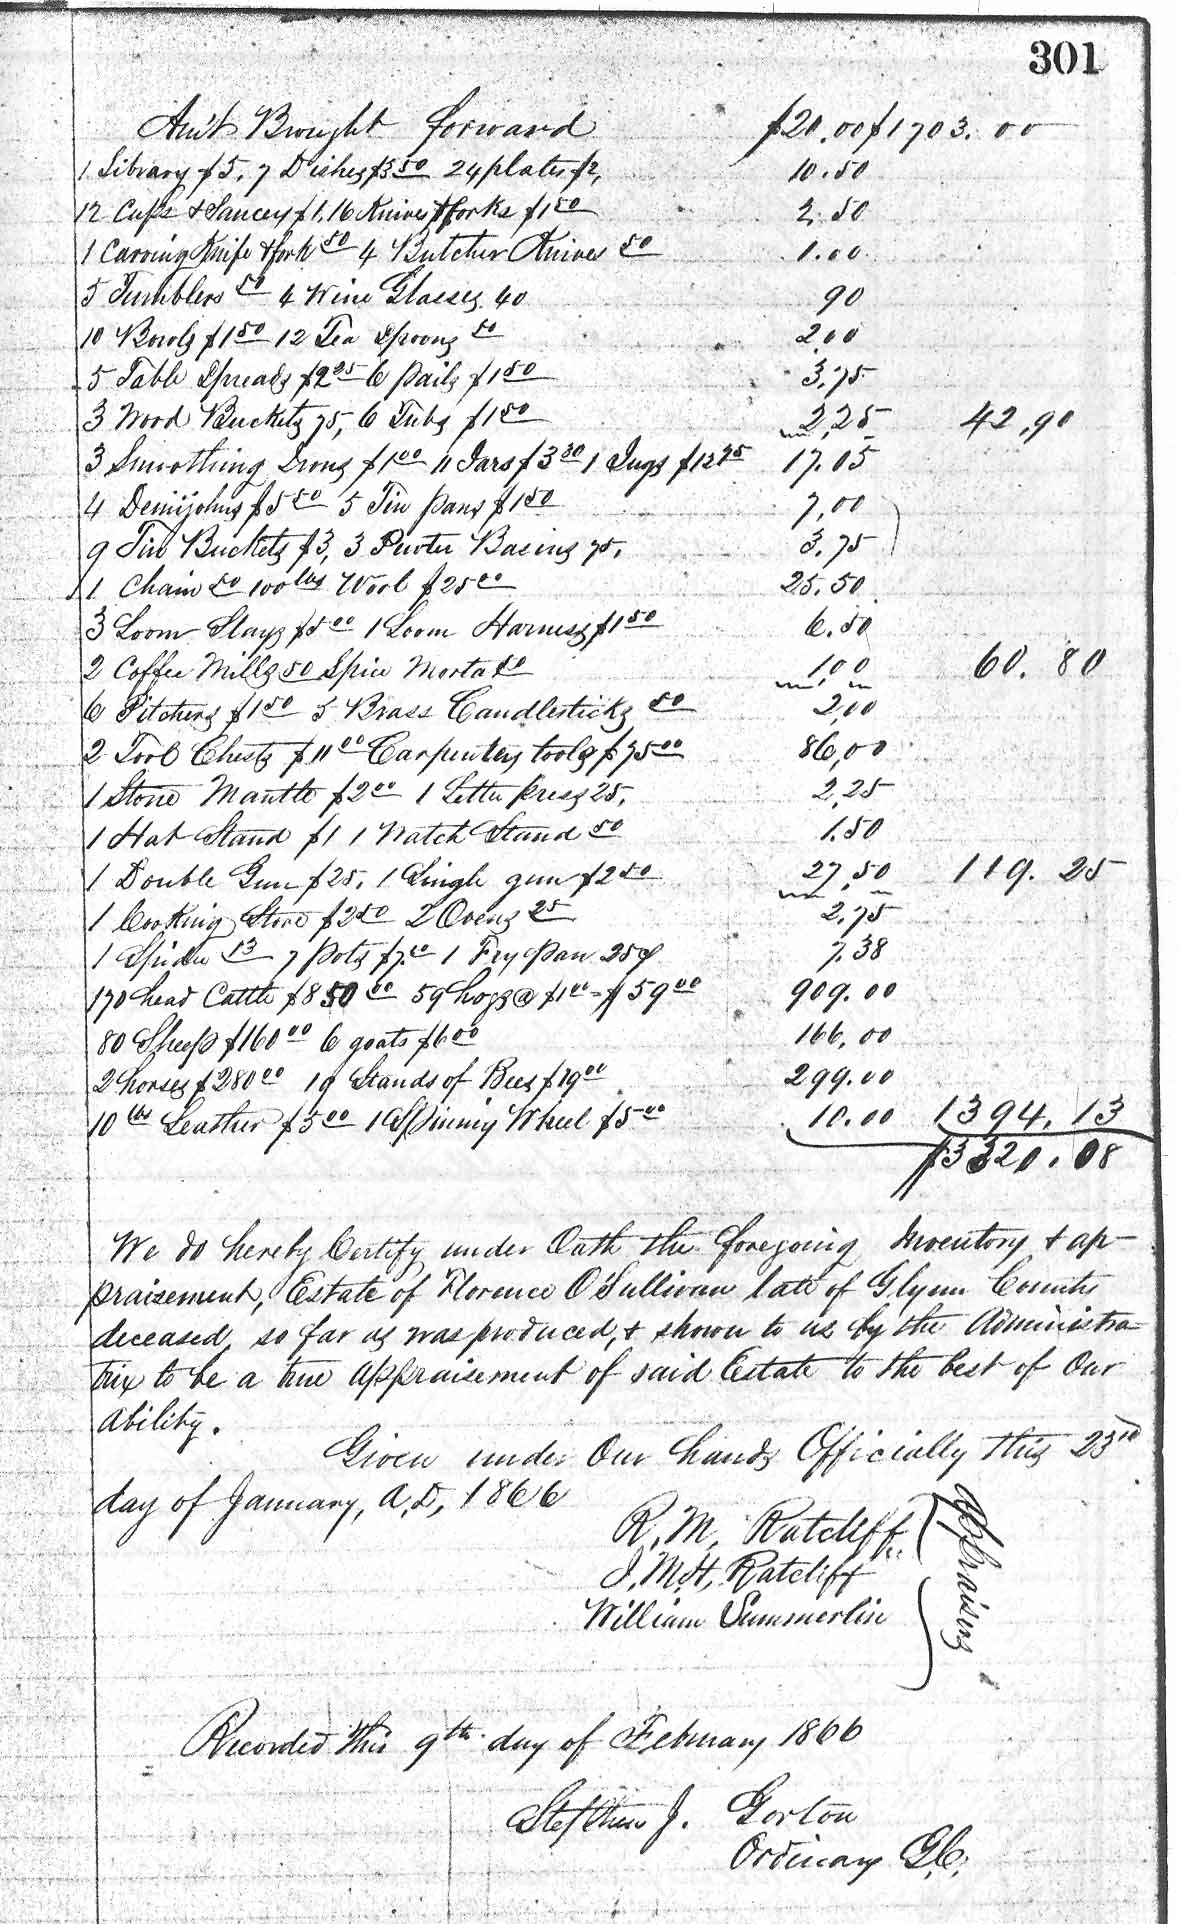 301
Am't Brought forward $20.00 $1703.00
1 Library $5. 7 Dishes $3 50 24 plates $2, 10.50
12 Cups & Saucers $1, 16 Knives & forks $1 50 2.50
1 Carving Knife & fork 50 4 Butcher Knives 50 1.00
5 Tumblers 50 4 Wine Glasses 40 90
10 Bowls $1 50 12 Tea Spoons 50 2.00
5 Table Spreads $2 25 6 pails $1 50 3.75
3 Wood Buckets 75, 6 Tubs $1 50 2,25 42,90
3 Smoothing Irons $1 00 11 Jars $3 30 1 Jugs $12 75 17.05
4 Demijohns $5 50 5 Tin pans $1 50 7,00
9 Tin Buckets $3, 3 Pewter Basins 75, 3.75
1 Chain 50 100 lbs Wool $25 00 25.50
3 Loom Slays $5 00 1 Loom Harness $1 50 6.50
2 Coffee Mills 50 Spice Mortar 50 1,00 60.80
6 Pitchers $1 50 5 Brass Candlesticks 50 2,00
2 Tool Chests $11 00 Carpenters tools $75 00 86,00
1 Stone Mantle $2 00 1 Letter press 25, 2,25
1 Hat Stand $1 1 Watch Stand 50 1.50
1 Double Gun $25, 1 Single gun $2 50 27,50 119.25
1 Cooking Stove $2 50 2 Ovens 25 2,75
1 Spider 13 7 Pots $7.00 1 Fry pan 25¢ 7.38
170 head Cattle $850 00 59 hogs @ $1 00 = $59 00 909.00
80 Sheep $160 00 6 goats $6 00 166,00
2 horses $280 00 19 Stands of Bees $19 00 299.00
10 lbs Leather $5 00 1 Spinning Wheel $5 00 10.00 1394.13
$3320.08
We do hereby Certify under Oath the foregoing Inventory & ap-
praisement, Estate of Florence O'Sullivan late of Glynn County
deceased, so far as was produced, & shown to us by the Administra-
trix to be a true appraisement of said Estate to the best of Our
ability.
Given under Our hands Officially this 23rd
day of January, A.D, 1866
R. M. Ratcliff
J. M. H. Ratcliff
William Summerlin
Recorded this 9th day of February 1866
Stephen J. Gorton
Ordinary G.C.